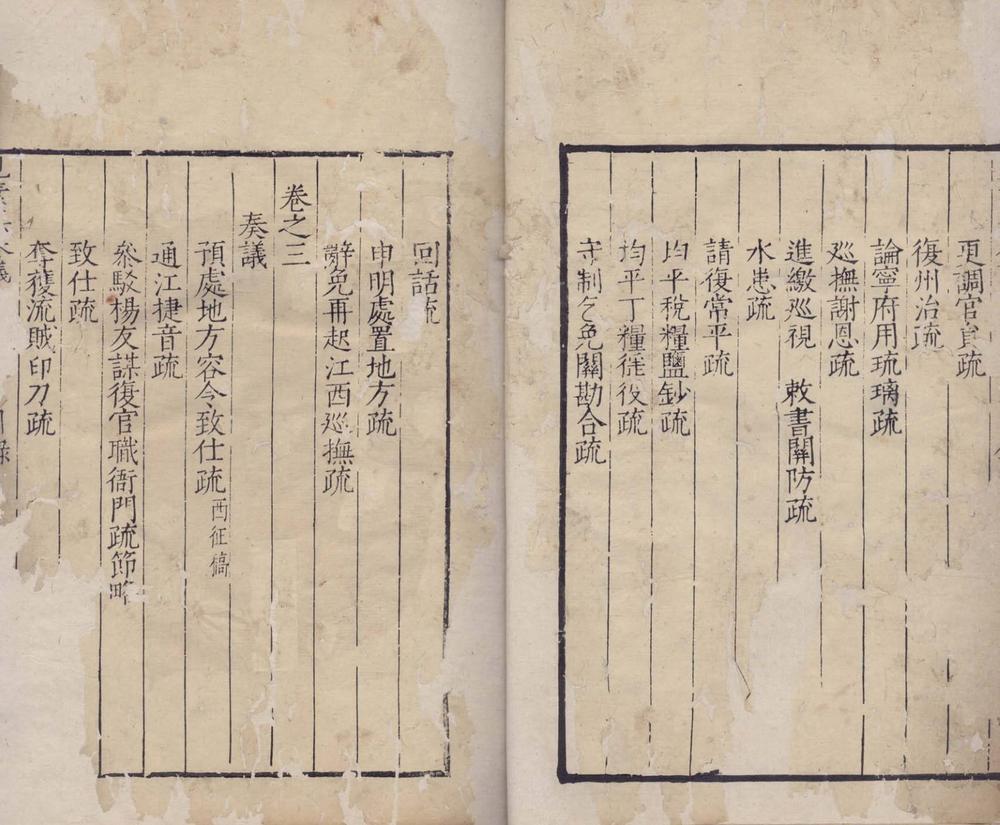 更調官員疏
復州治疏
論寧府用琉璃疏
巡撫謝恩疏
進繳巡視　敕書關防疏
水患疏
請復常平疏
均平稅糧鹽鈔疏
均平丁糧徭役疏
守制乞免關勘合疏
回話疏
申明處置地方疏
辭免再起江西巡撫疏
卷之三
奏議
預處地方容令致仕疏 西征稿
通江捷音疏
參駁楊友謀復官職衙門疏節略
致仕疏
奪獲流賊印刀疏